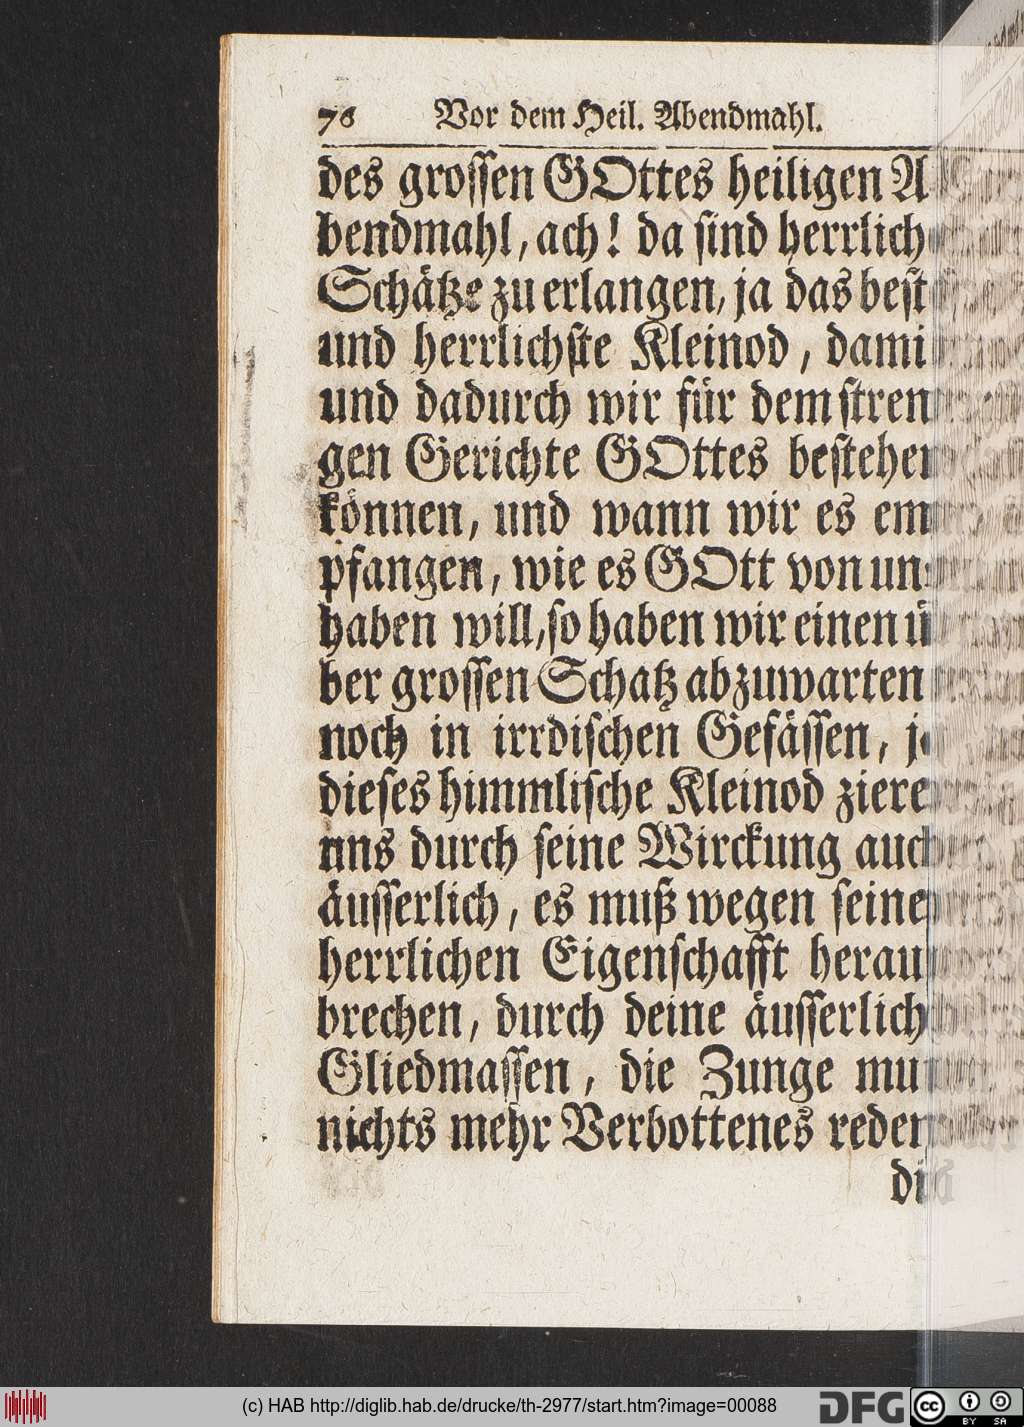 76 Vor dem Heil. Abendmahl.
des grossen GOttes heiligen A
bendmahl, ach! da sind herrlich
Schätze zu erlangen, ja das best
und herrlichste Kleinod, dami
und dadurch wir für dem stren
gen Gerichte GOttes bestehen
können, und wann wir es em
pfangen, wie es GOtt von uns
haben will, so haben wir einen ü
ber grossen Schatz abzuwarten
noch in irrdischen Gefässen, j
dieses himmlische Kleinod ziere
uns durch seine Wirckung auch
äusserlich, es muß wegen seine
herrlichen Eigenschafft herau
brechen, durch deine äusserlich
Gliedmassen, die Zunge mu
nichts mehr Verbottenes reden
die
(c) HAB http://diglib.hab.de/drucke/th-2977/start.htm?image=00088
DFG
cc BY SA